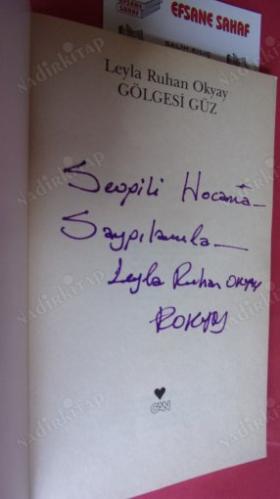 EFSANE SAHAF
Leyla Ruhan Okyay
GÖLGESİ GÜZ
Sevgili Hocama
Saygılarımla
Leyla Ruhan OKYAY
ROKYAY
CAN
NADİRKİTAP